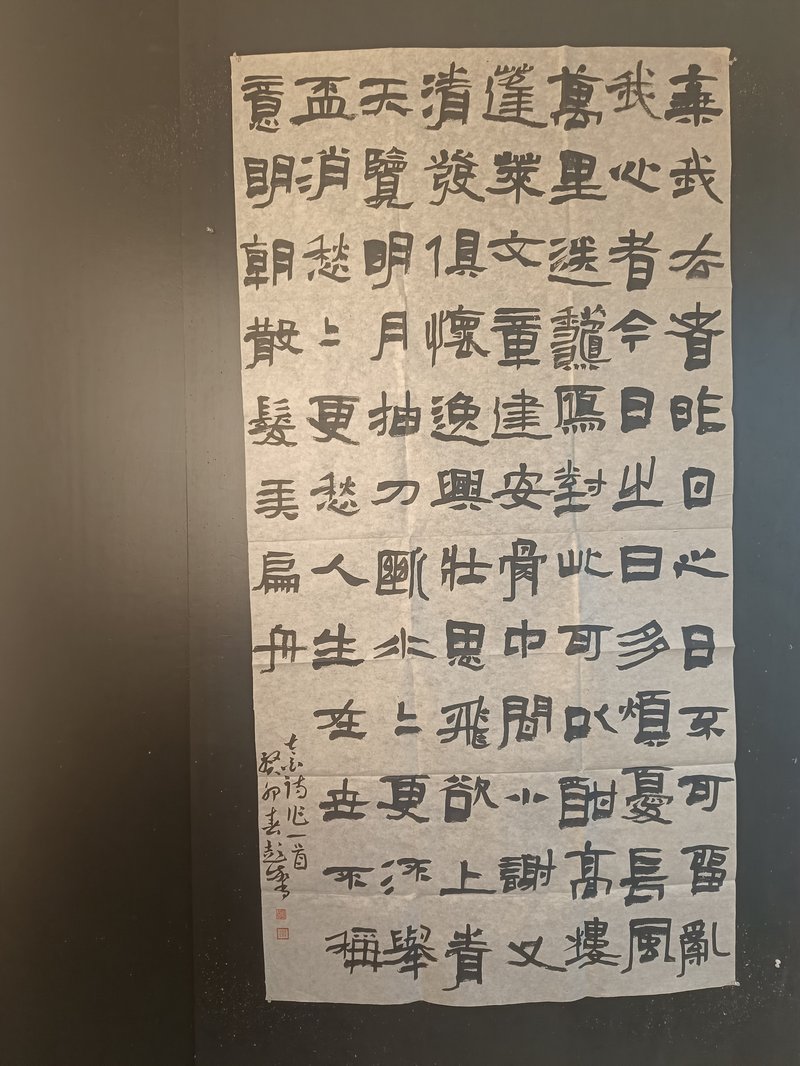 棄我去者昨日之日不可留亂
我心者今日之日多煩憂長風
萬里送龝鴈對此可以酣高樓
蓬萊文章建安骨中間小謝又
清發俱懷逸興壯思飛欲上青
天覽明月抽刀斷水〻更流舉
盃消愁〻更愁人生在世不稱
意明朝散髮弄扁舟
太白詩作一首
癸卯春彭